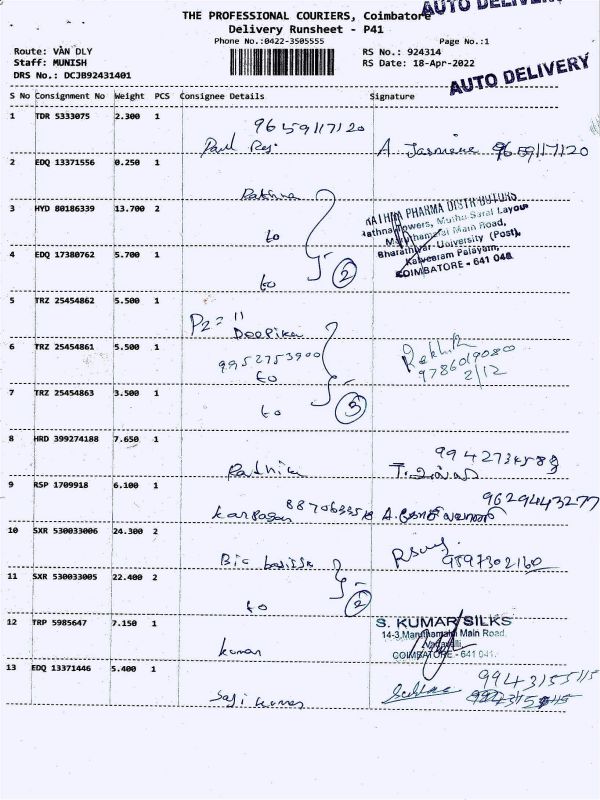 AUTO DELIVERY
THE PROFESSIONAL COURIERS, Coimbatore
Delivery Runsheet - P41
Phone No.:0422-3505555 Page No.:1
Route: VAN DLY RS No.: 924314
Staff: MUNISH RS Date: 18-Apr-2022
DRS No.: DCJB92431401
AUTO DELIVERY
S No Consignment No Weight PCS Consignee Details Signature
1 TDR 5333075 2.300 1
9659117120
Paul Raj. A. Jasmine 9659117120
2 EDQ 13371556 0.250 1
Rathna
RATHNA PHARMA DISTRIBUTORS
3 HYD 80186339 13.700 2
Rathna Towers, Muthu Saral Layout
to Maruthamalai Main Road,
Bharathiyar University (Post),
4 EDQ 17380762 5.700 1
Kalveeram Palayam,
COIMBATORE - 641 046
to 2
5 TRZ 25454862 5.500 1
Pz = 11
Deepika
6 TRZ 25454861 5.500 1
9952753900
9786019080
to 2/12
7 TRZ 25454863 3.500 1
to 3
8 HRD 399274188 7.650 1
Rathna
9 RSP 1709918 6.100 1
9629443277
Karpagam
10 SXR 530033006 24.300 2
9897302160
11 SXR 530033005 22.400 2
to 2
12 TRP 5985647 7.150 1
S. KUMAR SILKS
14-3, Maruthamalai Main Road,
Vadavalli
COIMBATORE - 641 041.
kumar
13 EDQ 13371446 5.400 1
9943155115
Saji kumar